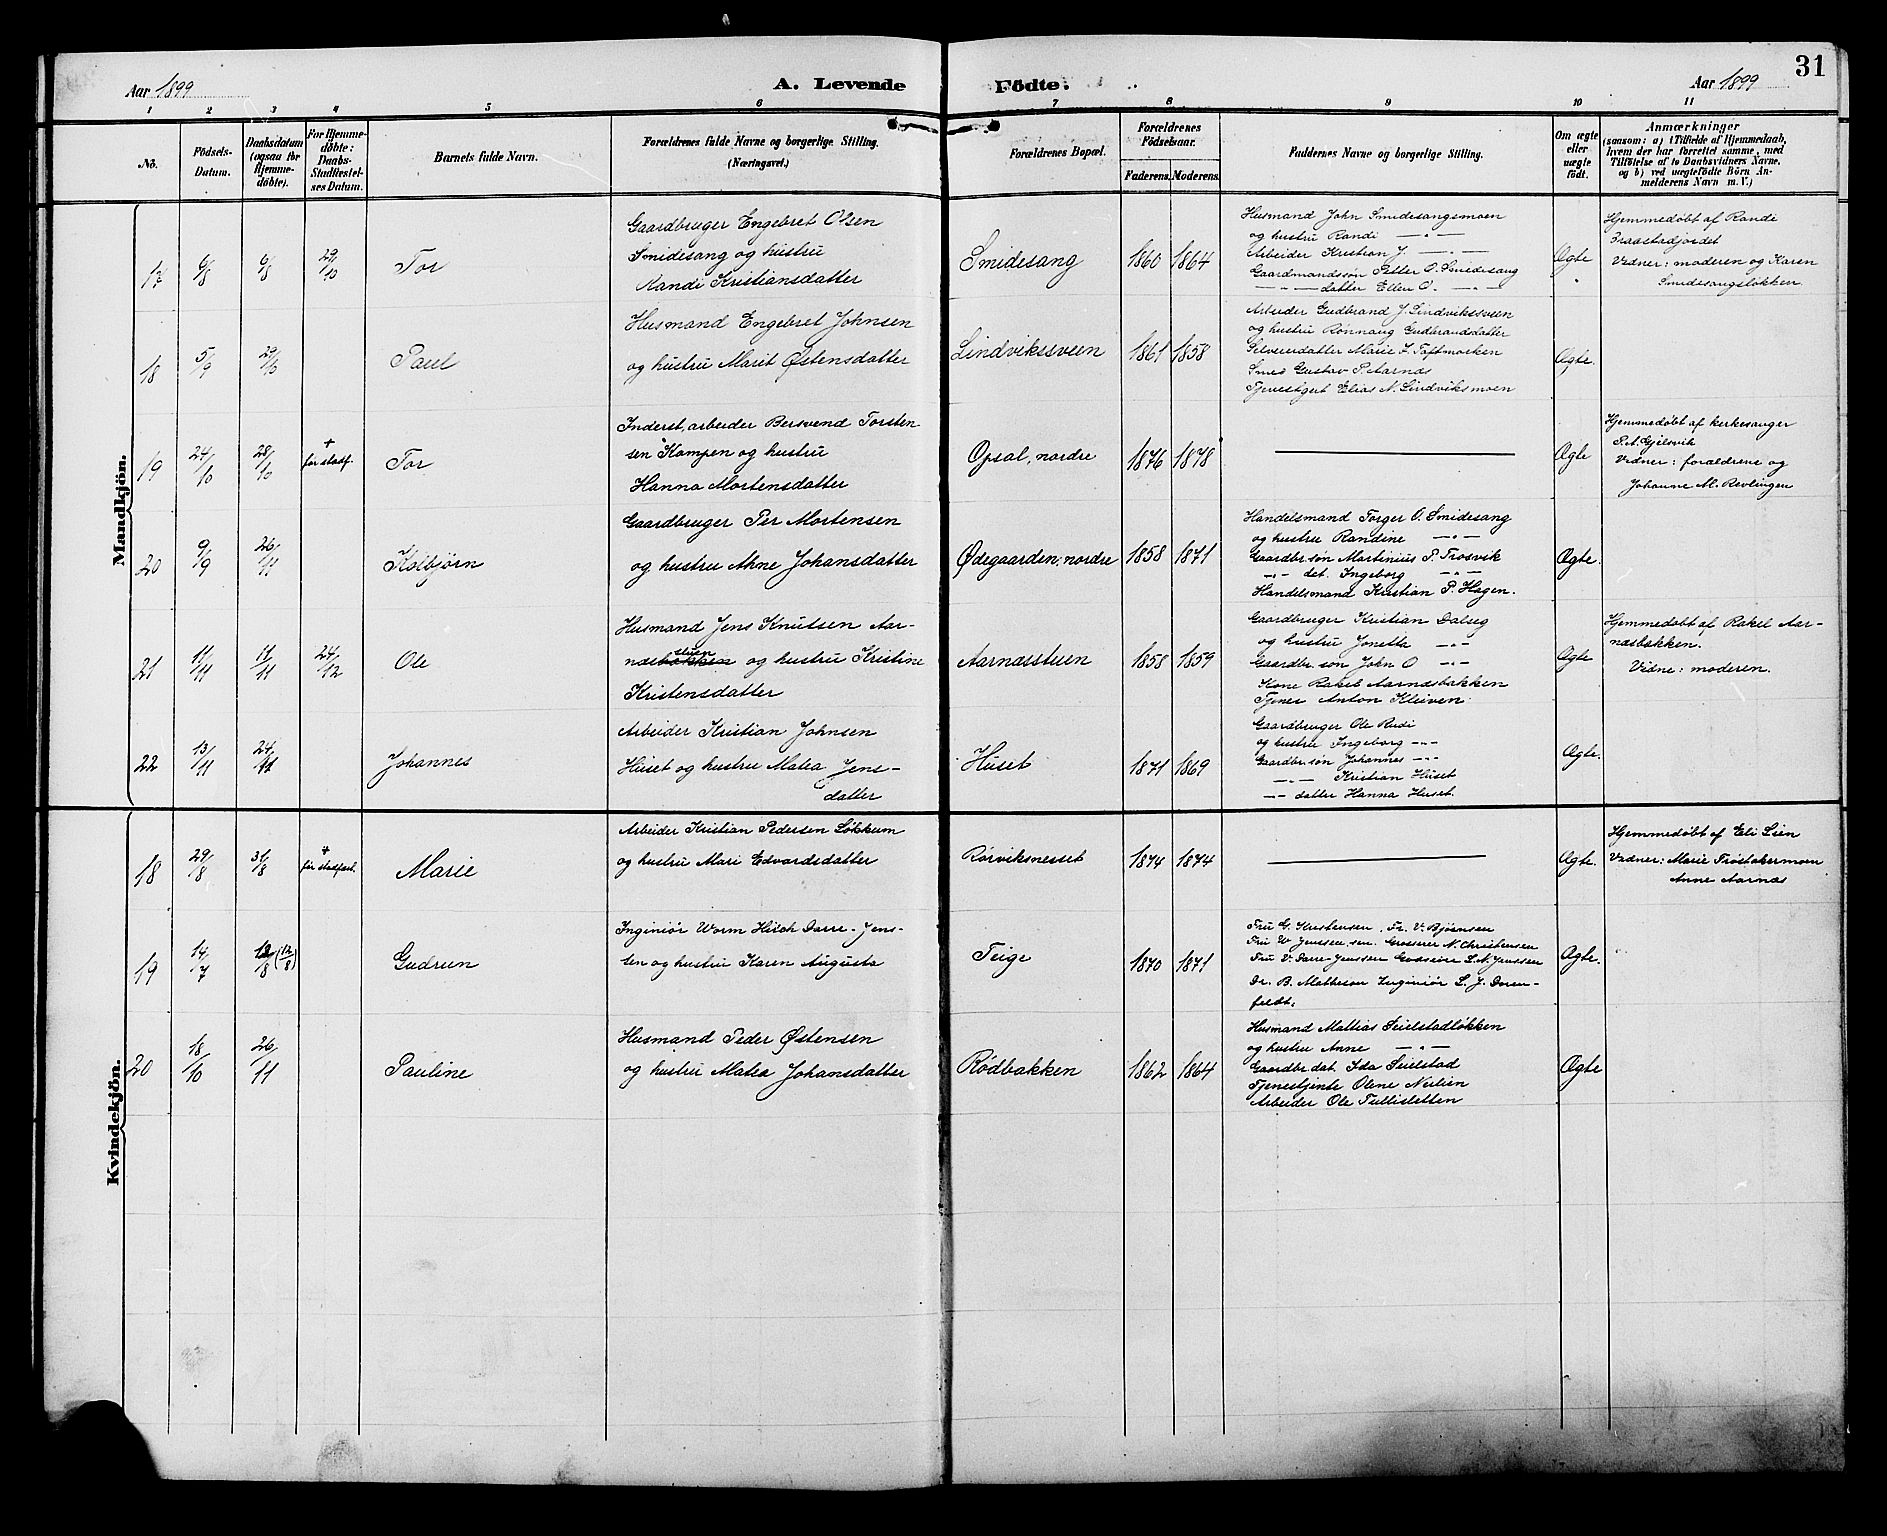 31
Aar 1899 A. Levende Födte. Aar 1899
1 2 3 4 5 6 7 8 9 10 11
No.
Födsels-Datum.
Daabsdatum (ogsaa for Hjemmedöbte).
For Hjemmedöbte: Daabs-Stadfæstelses Datum.
Barnets fulde Navn.
Forældrenes fulde Navne og borgerlige Stilling. (Næringsvei.)
Forældrenes Bopæl.
Forældrenes Födselsaar.
Faderens. Moderens.
Faddernes Navne og borgerlige Stilling.
Om ægte eller uægte födt.
Anmærkninger
(saasom: a) i Tilfælde af Hjemmedaab, hvem der har forrettet samme, med Tilföielse af to Daabsvidners Navne, og b) ved uægtefödte Börn Anmelderens Navn m. V.)
Mandkjön.
17 6/8 6/8 29/10 Tor
Gaardbruger Engebret Olsen
Smidesang og hustru
Randi Kristiansdatter
Smidesang 1860 1864
Husmand John Smidesangsmoen
og hustru Randi —"—
Arbeider Kristian J. —"—
Gaardmandssøn Petter O. Smidesang
—"— datter Ellen O. —"—
Ægte
Hjemmedøbt af Randi
Braastadjordet
Vidner: moderen og Karen
Smidesangsløkken.
18 5/9 29/10 Paul
Husmand Engebret Johnsen
og hustru Marit Østensdatter
Lindviksveen 1861 1858
Arbeider Gudbrand J. Lindviksveen
og hustru Rønnaug Gudbrandsdatter
Selveierdatter Marie L. Toftmorken
Smed Gustav P. Aarnæs
Tjenestgut Elias N. Lindviksmoen
Ægte.
19 24/10 28/10 + før stadf. Tor
Inderst, arbeider Bersvend Torsten
sen Kampen og hustru
Hanna Mortensdatter
Opsal, nordre 1876 1878
Ægte
Hjemmedøbt af kirkesanger
P. A. Gjelsvik
Vidner: forældrene og
Johanne M. Revlingen
20 9/9 26/11 Kolbjørn
Gaardbruger Per Mortensen
og hustru Anne Johansdatter
Ødegaarden, nordre 1858 1871
Handelsmand Torger O. Smidesang
og hustru Randine —"—
Gaardbr. søn Martinius P. Trosvik
—"— dat. Ingeborg —"—
Handelsmand Kristian P. Hagen.
Ægte.
21 11/11 17/11 24/12 Ole
Husmand Jens Knutsen Aar-
næsbakken stuen og hustru Kristine
Kristensdatter
Aarnæsstuen 1858 1859
Gaardbruger Kristian Dalseg
og hustru Jonetta —"—
Gaardbr. søn John O —"—
Kone Rakel Aarnæsbakken
Tjener Anton Kleiven
Ægte
Hjemmedøbt af Rakel Aar-
næsbakken.
Vidne: moderen.
22 13/11 24/11 Johannes
Arbeider Kristian Johnsen
Huset og hustru Matea Jens-
datter
Huset 1871 1869
Gaardbruger Ole Rudi
og hustru Ingeborg —"—
Gaardbr. søn Johannes —"—
—"— Kristian Huset
—"— datter Hanna Huset.
Ægte.
Kvindekjön.
18 29/8 31/8 + før stadfæst. Marie
Arbeider Kristian Pedersen Løkkum
og hustru Mari Edvardsdatter
Rørviknesset 1874 1874
Ægte.
Hjemmedøbt af Eli Lien
Vidner: Marie Frøstakermoen
Anne Aarnæs
19 14/7 13/8 (12/8) Gudrun
Ingeniør Worm Hirch Darre-Jens-
sen og hustru Karen Augusta
Teige 1870 1871
Fru G. Kristensen, Fr. V. Bjørnsen
Fru W. Jenssen, sen. Grosserer N. Christensen
Fru V. Darre-Jenssen Godseier L. N. Jenssen
Dr. B. Matheson Ingeniør L. J. Doren-
feldt.
Ægte.
20 18/10 26/11 Pauline
Husmand Peder Østensen
og hustru Matea Johansdatter
Rødbakken 1862 1864
Husmand Mattias Seielstadløkken
og hustru Anne —"—
Gaardbr. dat. Ida Seielstad
Tjenestjente Olene Neslien
Arbeider Ole Tullisletten
Ægte